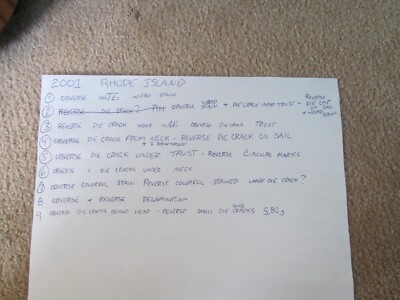 2001 RHODE ISLAND
① OBVERSE WEIRD STAIN
② REVERSE DIE CRACK? OBVERSE WEIRD STAIN + DIE CRACK NEAR TRUST - REVERSE DIE CHIP ON SAIL + WEIRD STAIN
③ REVERSE DIE CRACK OBVERSE DIE CRACK TRUST
④ OBVERSE DIE CRACKS FROM NECK - REVERSE DIE CRACK ON SAIL
⑤ OBVERSE DIE CRACK UNDER TRUST - REVERSE CIRCULAR MARKS
⑥ OBVERSE 2 DIE CRACKS UNDER NECK
⑦ OBVERSE COLORFUL STAIN REVERSE COLORFUL STAINED LARGE DIE CRACK?
8 OBVERSE + REVERSE DELAMINATION
9 OBVERSE DIE CRACKS BEHIND HEAD - REVERSE SMALL DIE CRACKS 5.80g